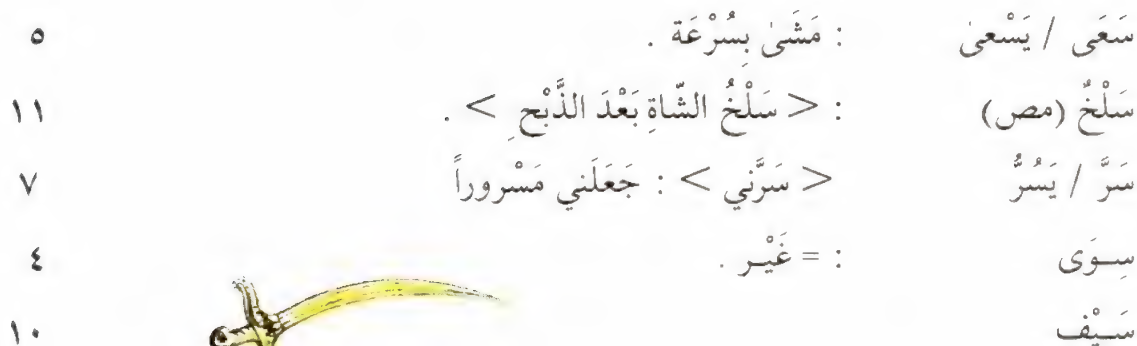 سَعَى / يَسْعىٰ : مَشَىٰ بِسُرْعَة . ٥
سَلْخٌ (مص) : < سَلْخُ الشّاةِ بَعْدَ الذَّبْحِ > . ١١
سَرَّ / يَسُرُّ < سَرَّني > : جَعَلَني مَسْروراً ٧
سِـوَى : = غَيْـر . ٤
سَـيْف ١٠